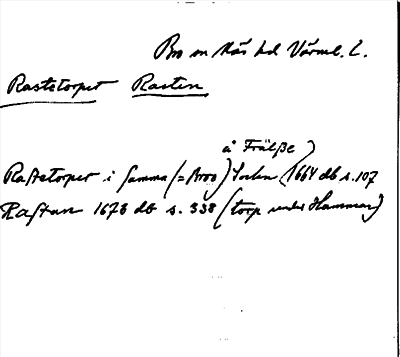 Bro sn Näs hd Värml. l.
Rastetorpet Rasten
å Frälße)
Raſtetorpet i Samma (= Broo) Sochn (1664 db s. 107
Raſtan 1673 db s. 338 (torp under Hammar)